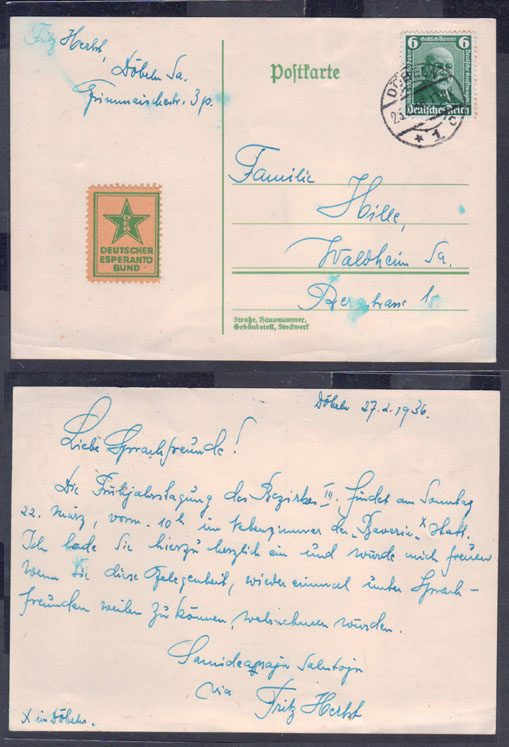 Fritz Herbst,
Döbeln Sa.
Grimmaischestr. 3 p.
Postkarte
6 Gottlieb Daimler 6
Deutsches Reich
DÖBELN
* 1 c
DEUTSCHER
ESPERANTO
BUND
Familie
Hille,
Waldheim Sa.
Bergstrasse
Straße, Hausnummer,
Gebäudeteil, Stockwerk
Döbeln 27.2.1936.
Liebe Sprachfreunde!
Die Frühjahrstagung des Bezirkes IV. findet am Sonntag
22. März, vorm. 10 h im Nebenzimmer der „Bavaria" x statt.
Ich lade Sie hierzu herzlich ein und würde mich freuen
wenn Sie diese Gelegenheit, wieder einmal unter Sprach-
freunden weilen zu können, wahrnehmen würden.
Samideanajn Salutojn
via
Fritz Herbst
X in Döbeln.